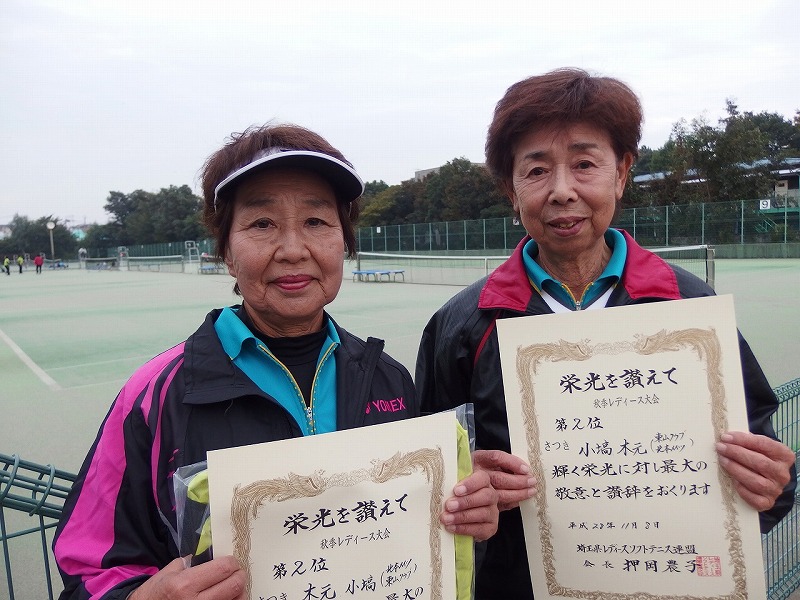 YONEX
9
栄光を讃えて
秋季レディース大会
第2位
さつき 木元 小塙
栄光を讃えて
秋季レディース大会
第2位
さつき 小塙 木元
輝く栄光に対し最大の
敬意と讃辞をおくります
平成28年11月8日
埼玉県レディースソフトテニス連盟
会長 押岡農子